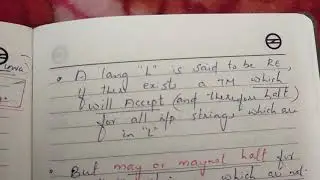 • A lang "L" is said to be RE,
if there exists a TM which
will Accept (and therefore halt)
for all i/p strings which are
in "L"
• But may or maynot halt for
which are not